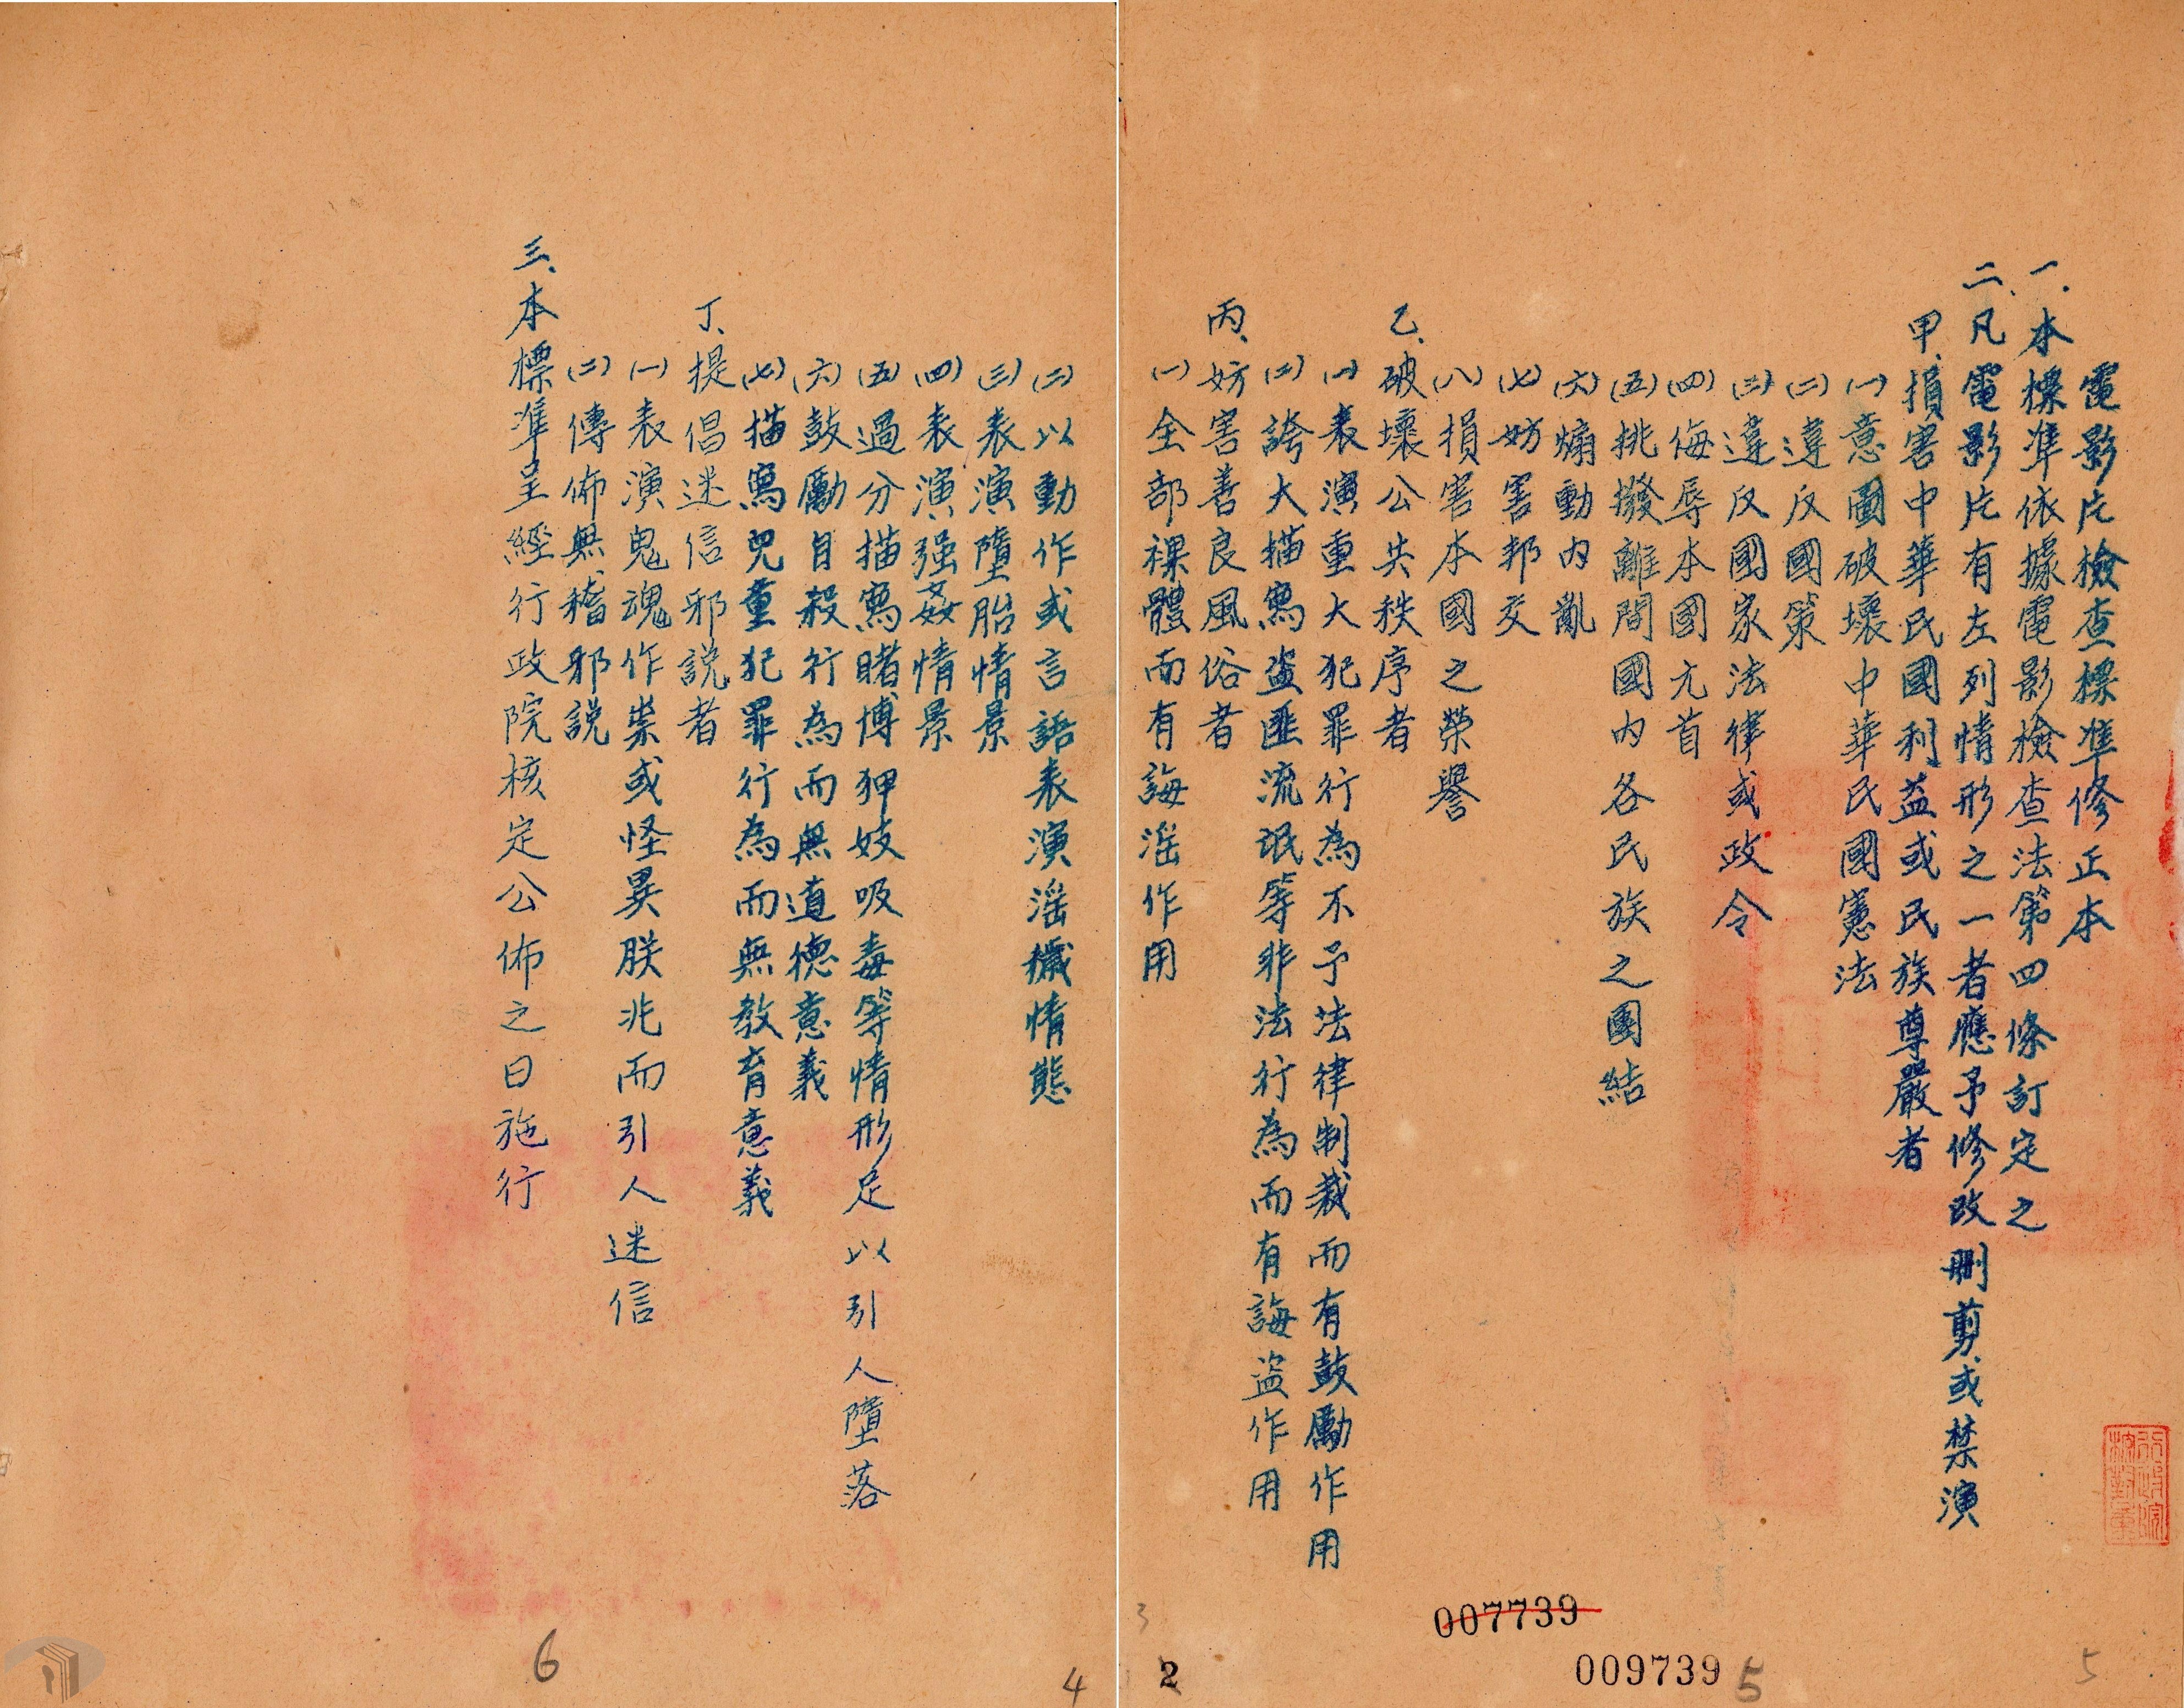 電影片檢查標準修正本
一、本標準依據電影檢查法第四條訂定之
二、凡電影片有左列情形之一者應予修改刪剪或禁演
甲、損害中華民國利益或民族尊嚴者
(一)意圖破壞中華民國憲法
(二)違反國策
(三)違反國家法律或政令
(四)侮辱本國元首
(五)挑撥離間國內各民族之團結
(六)煽動內亂
(七)妨害邦交
(八)損害本國之榮譽
乙、破壞公共秩序者
(一)表演重大犯罪行為不予法律制裁而有鼓勵作用
(二)誇大描寫盜匪流氓等非法行為而有誨盜作用
丙、妨害善良風俗者
(一)全部裸體而有誨淫作用
(二)以動作或言語表演淫穢情態
(三)表演墮胎情景
(四)表演强姦情景
(五)過分描寫賭博狎妓吸毒等情形足以引人墮落
(六)鼓勵自殺行為而無道德意義
(七)描寫兒童犯罪行為而無教育意義
丁、提倡迷信邪説者
(一)表演鬼魂作祟或怪異朕兆而引人迷信
(二)傳佈無稽邪説
三、本標準呈經行政院核定公佈之日施行
007739
009739
5
5
3
2
4
6